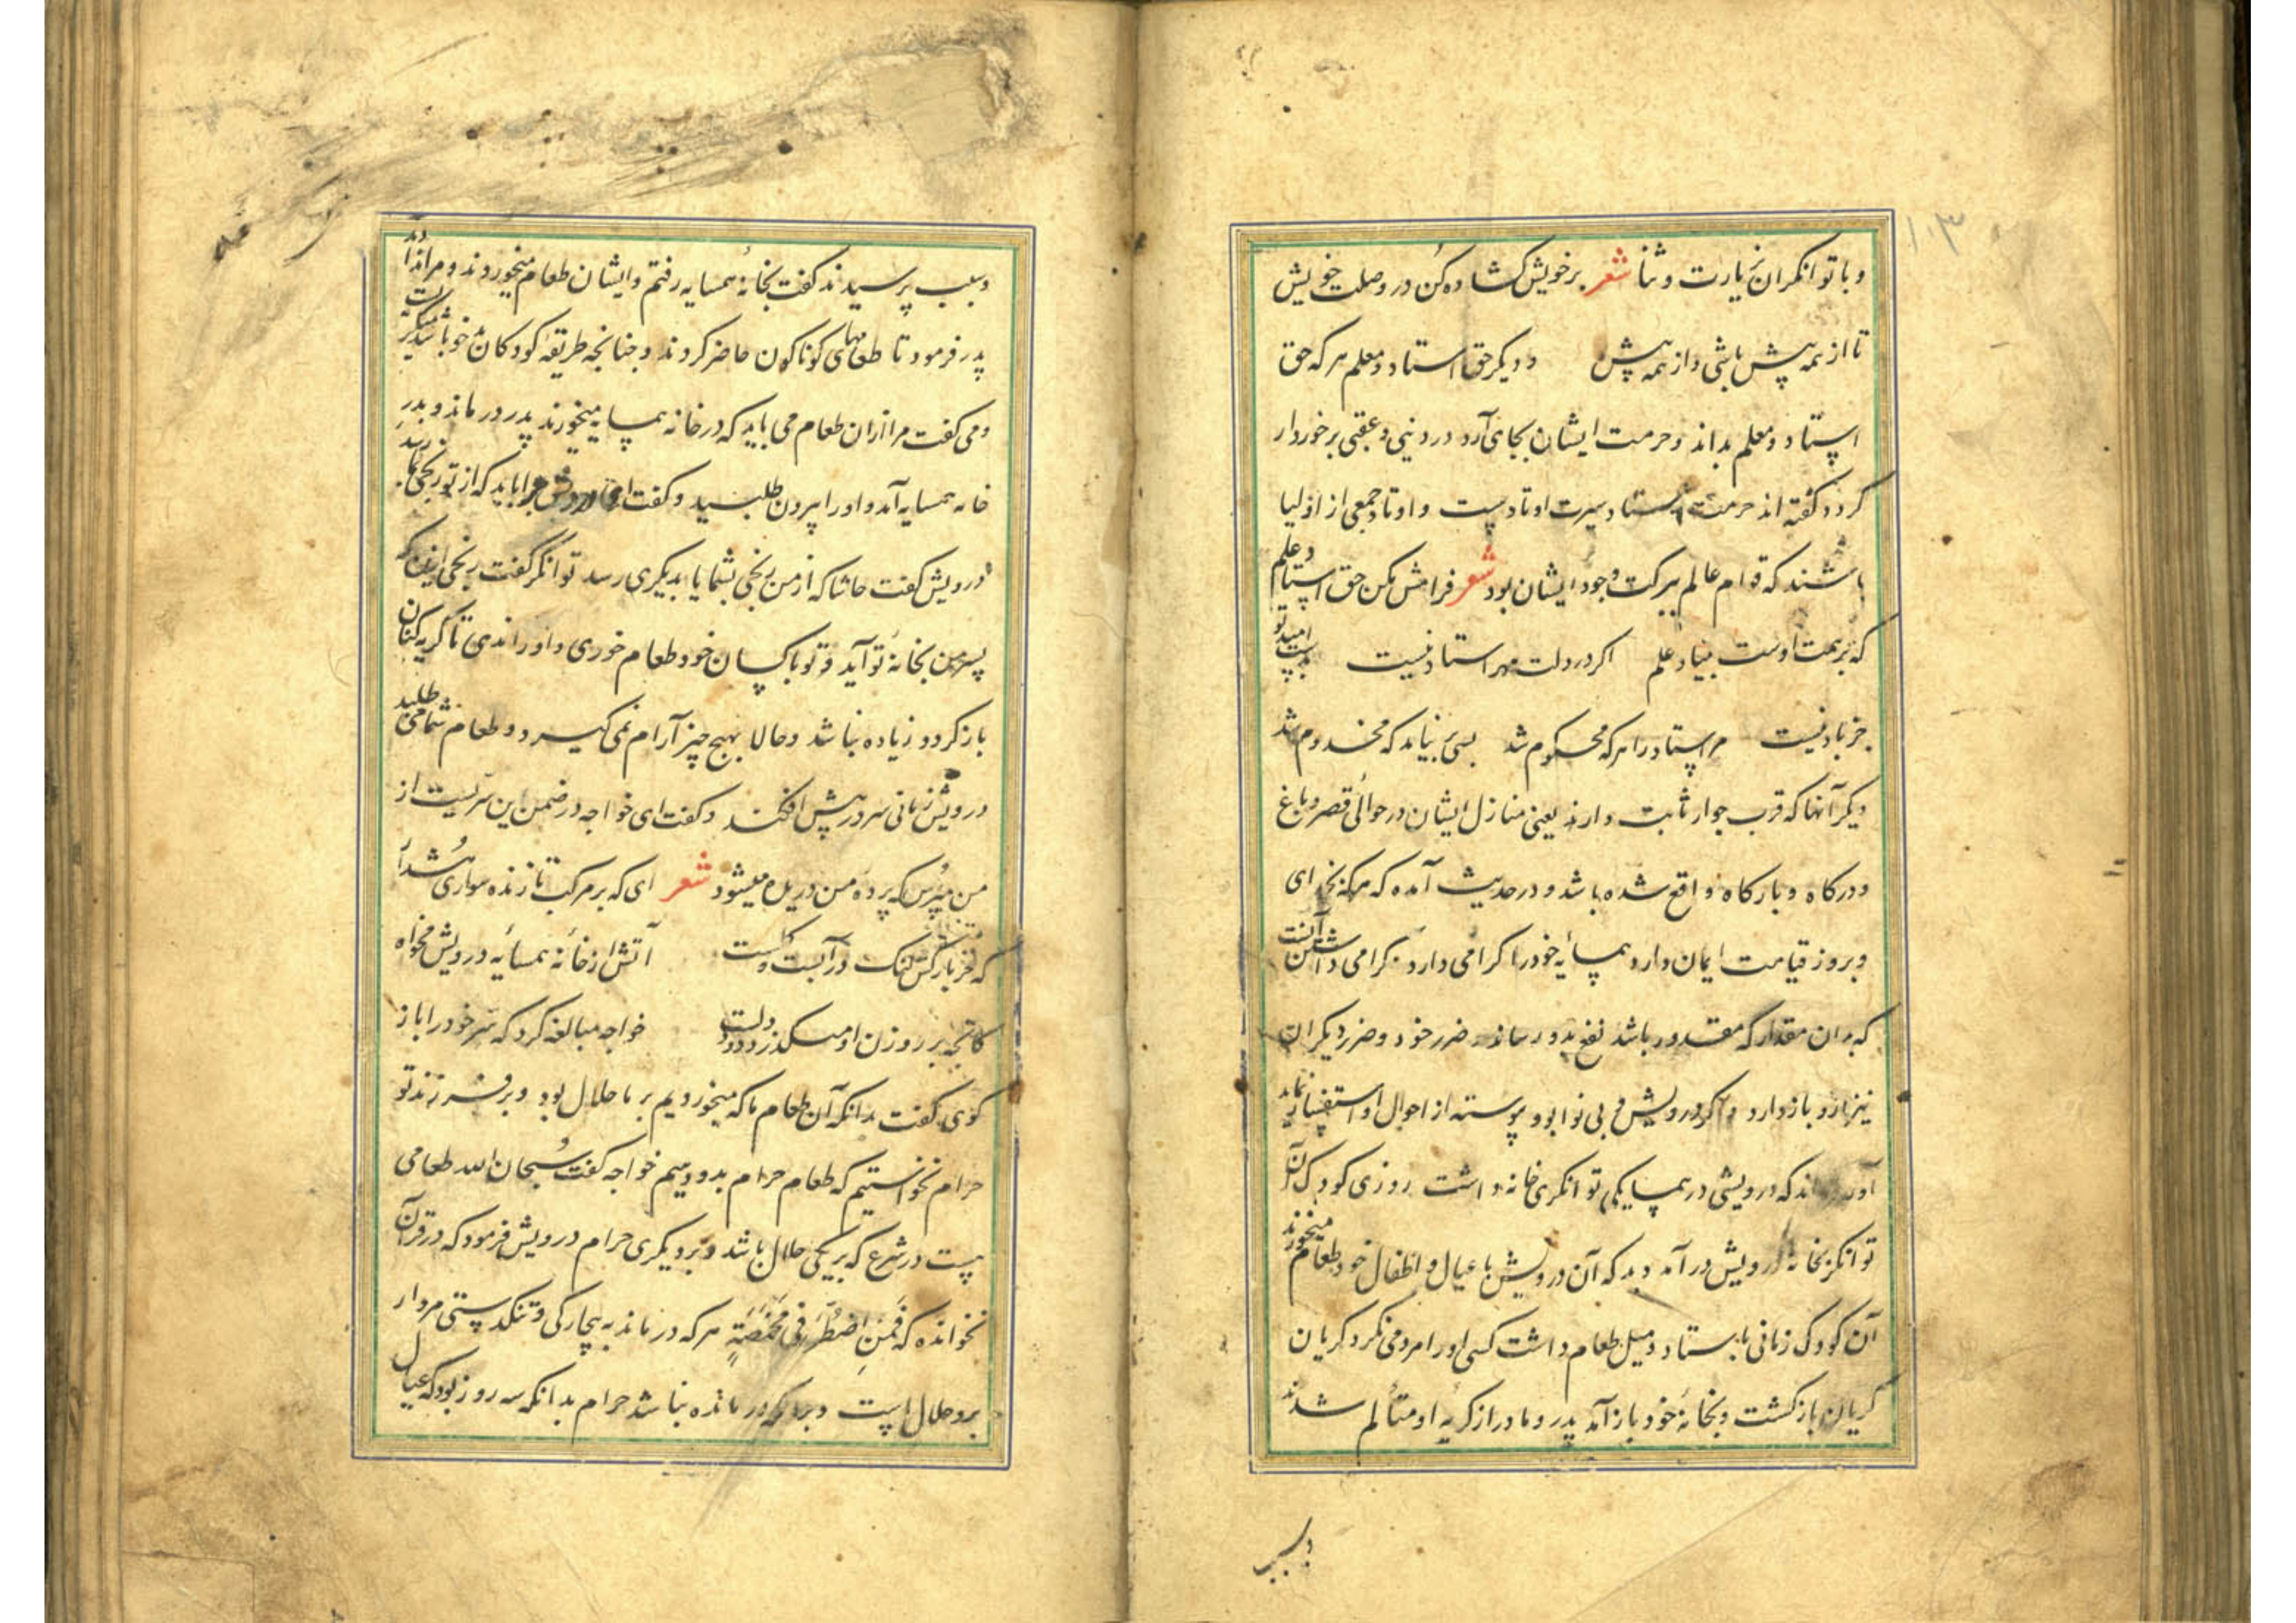 ۱۰۳
و با توانکران بزیارت و ثنا شعر بر خویش کشاده کن در وصلت خویش
تا از همه پیش باشی و از همه بیش و دیکر حق استاد و معلم هر که حق
استاد و معلم بداند و حرمت ایشان بجای آرد در دنیی و عقبی برخوردار
کردد و کفته اند حرمت استاد سیرت اوتادست و اوتاد جمعی از اولیا
باشند که قوام عالم ببرکت وجود ایشان بود شعر فرامش مکن حق استاد علم
که بر همت اوست بنیاد علم اکر در دلت مهر استاد نیست بدست امید تو
جز باد نیست مر استاد را هر که محکوم شد بسی بر نیاید که مخدوم شد
دیکر آنها که قرب جوار ثابت دارند یعنی منازل ایشان در حوالی قصر و باغ
و درکاه و بارکاه واقع شده باشد و در حدیث آمده که هر که بخدای
و بروز قیامت ایمان دارد همسایه خود را کرامی دارد کرامی داشتن آنست
که بدان مقدار که مقدور باشد نفع بدو رساند و ضرر خود و ضرر دیکران
نیز ازو باز دارد و اکر درویش و بی نوا بود پیوسته از احوال او استفسار نماید
آورده اند که درویشی در همسایکی توانکری خانه داشت روزی کودک آن
توانکر بخانه درویش در آمد دید که آن درویش با عیال و اطفال خود طعام میخورند
آن کودک زمانی بایستاد و میل طعام داشت کسی او را مردمی نکرد کریان
کریان باز کشت و بخانه خود باز آمد پدر و مادر از کریه او متألم شدند
و سبب
و سبب پرسیدند کفت بخانه همسایه رفتم و ایشان طعام میخوردند و مرا ندادند
پدر فرمود تا طعامهای کوناکون حاضر کردند و جنانجه طریقه کودکان باشد میکریست
و می کفت مرا ازان طعام می باید که در خانه همسایه میخورند پدر در ماند و بدر
خانه همسایه آمد و او را بیرون طلبید و کفت ای درویش چرا باید که از تو رنجی بما رسد
درویش کفت حاشا که از من رنجی بشما یا بدیکری رسد توانکر کفت رنجی ازین که
پسر من بخانه تو آید و تو با کسان خود طعام خوری و او را ندی تا کریه کنان
باز کردد زیاده نباشد و حالا بهیج چیز آرام نمی کیرد و طعام شما می طلبد
درویش زمانی سر در پیش افکند و کفت ای خواجه در ضمن این سریست از
من مپرس که پرده من دریده میشود شعر ای که بر مرکب تازنده سواری هشدار
که خر خارکش مسکین در آب و کلست آتش از خانه همسایه درویش مخواه
کانجه بر روزن او میکذرد دود دلست خواجه مبالغه کرد که سر خود را باز
کوی کفت بدانکه آن طعام ما که میخوردیم بر ما حلال بود و بر فرزند تو
حرام نخواستیم که طعام حرام بدو دهیم خواجه کفت سبحان الله طعامی
هست در شرع که بر یکی حلال باشد و بر دیکری حرام درویش فرمود که در قرآن
نخوانده که فَمَنِ اضْطُرَّ فِی مَخْمَصَةٍ هر که در ماند به بیچارکی و تنکدستی مردار
برو حلال است و بر آنکه در مانده نباشد حرام بدانکه سه روز بود که عیال